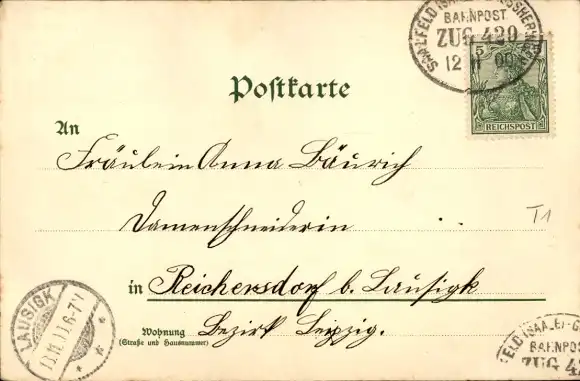 SAALFELD (SAALE)-GROSSHERINGEN
BAHNPOST
ZUG 420
12 11 00
5 5
REICHSPOST
Postkarte
An
Fräulein Anna Bäurich
Damenschneiderin
T1
in Reichersdorf b. Lausigk
Wohnung
(Straße und Hausnummer)
Bezirk Leipzig.
LAUSIGK
13.11.00.6-7V
FELD (SAALE)-G
BAHNPOS
ZUG 42